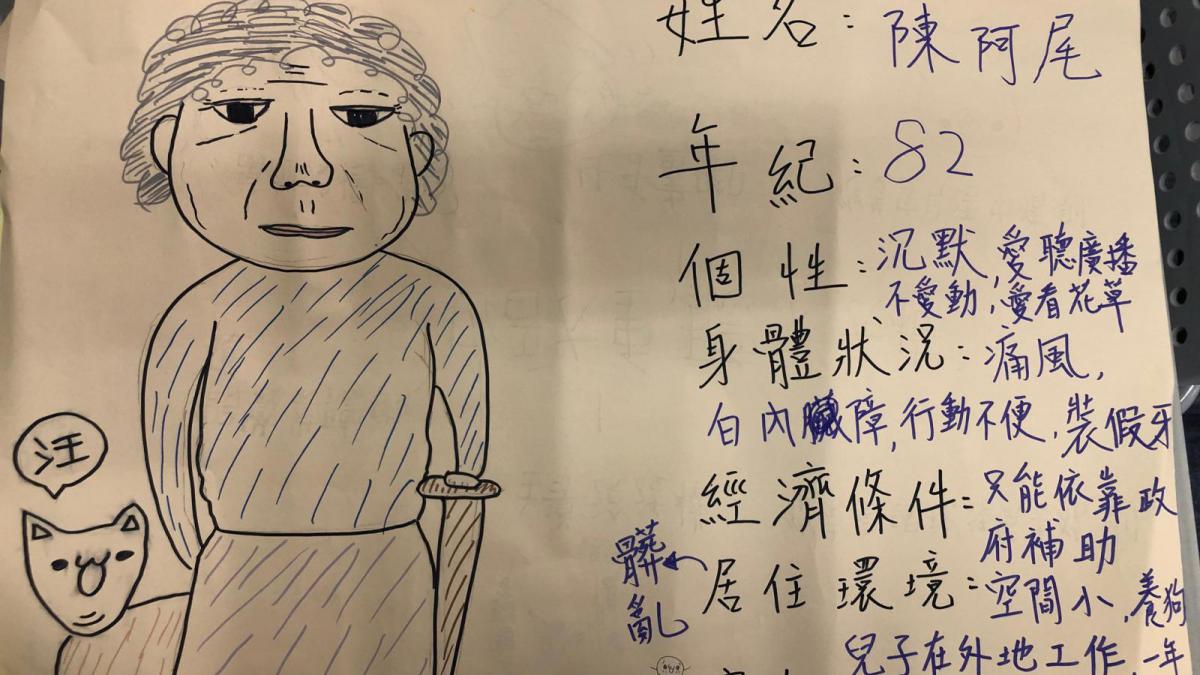 姓名：陳阿尾
年紀：82
個性：沉默，愛聽廣播
不愛動，愛看花草
身體狀況：痛風，
白內障，行動不便，裝假牙
經濟條件：只能依靠政
府補助
髒亂
居住環境：空間小，養狗
兒子在外地工作，一年
汪